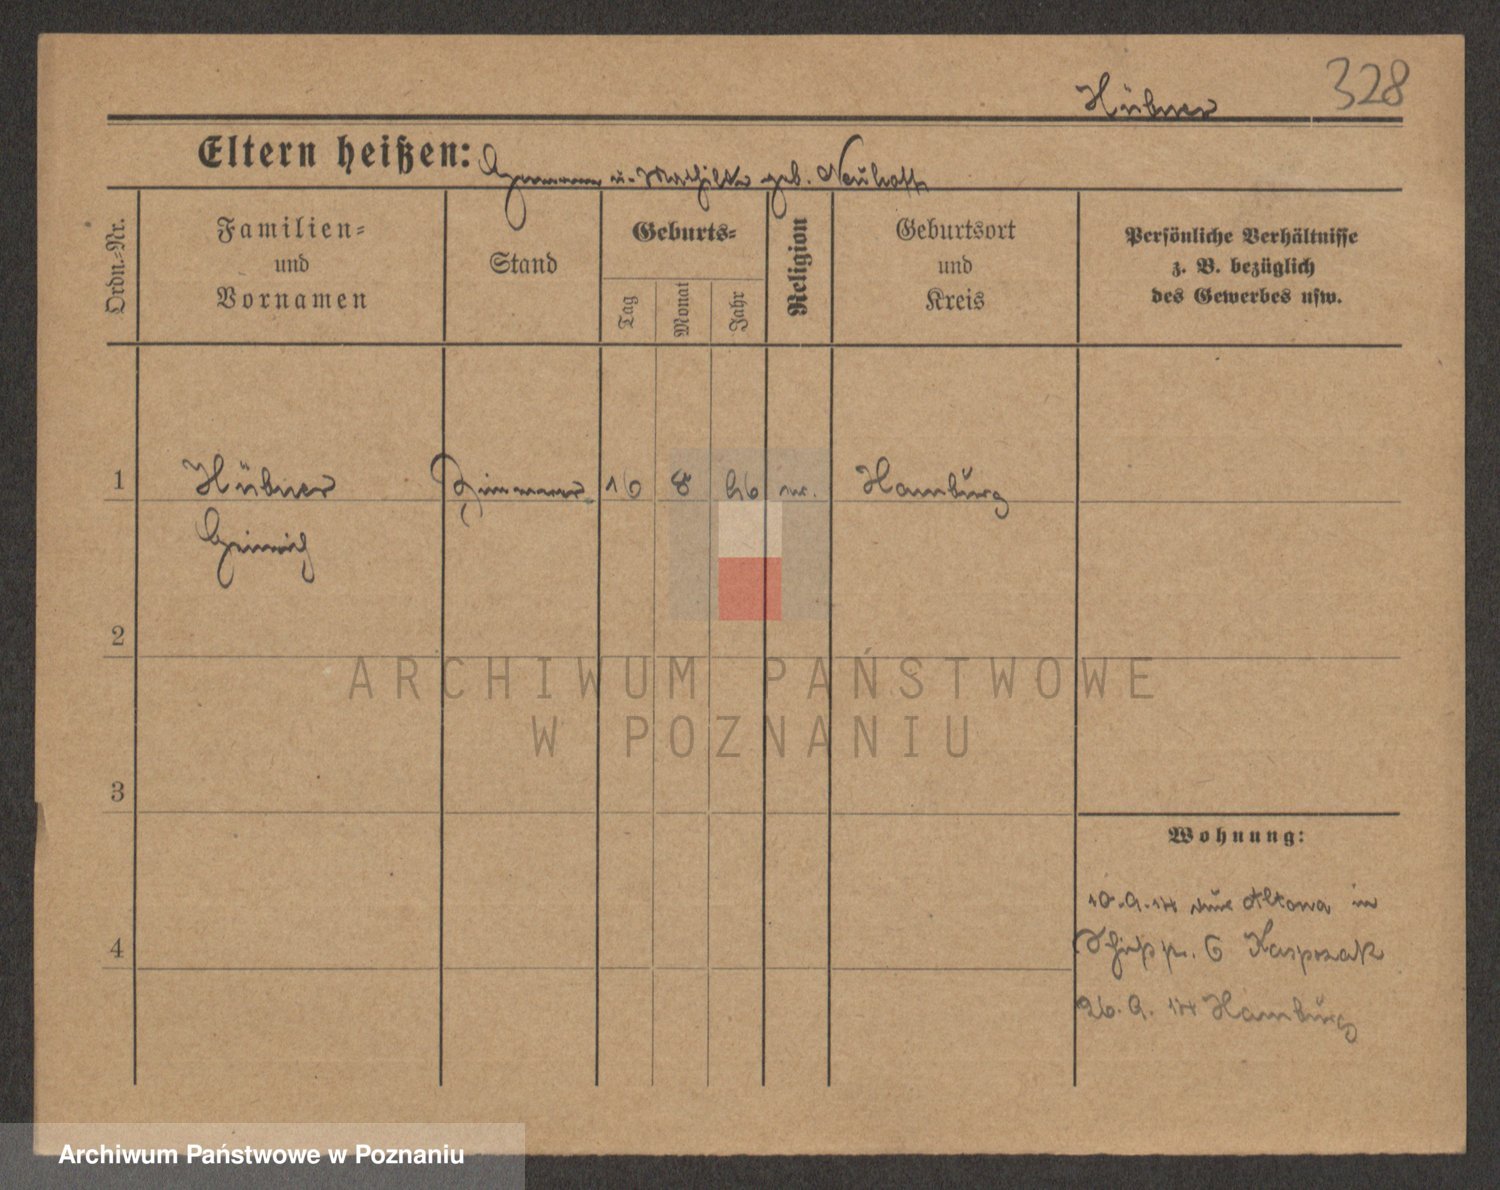 328
Hübner
Eltern heißen: Hermann u. Mathilde geb. Neuhoff
Ordn.-Nr.
Familien-
und
Vornamen
Stand
Geburts-
Tag
Monat
Jahr
Religion
Geburtsort
und
Kreis
Persönliche Verhältnisse
z. B. bezüglich
des Gewerbes usw.
1
Hübner
Zimmerer
16
8
Hamburg
Heinrich
2
ARCHIWUM PAŃSTWOWE
W POZNANIU
3
Wohnung:
10.9.14 aus Altona in
6 Kasprzak
4
26.9.14 Hamburg
Archiwum Państwowe w Poznaniu